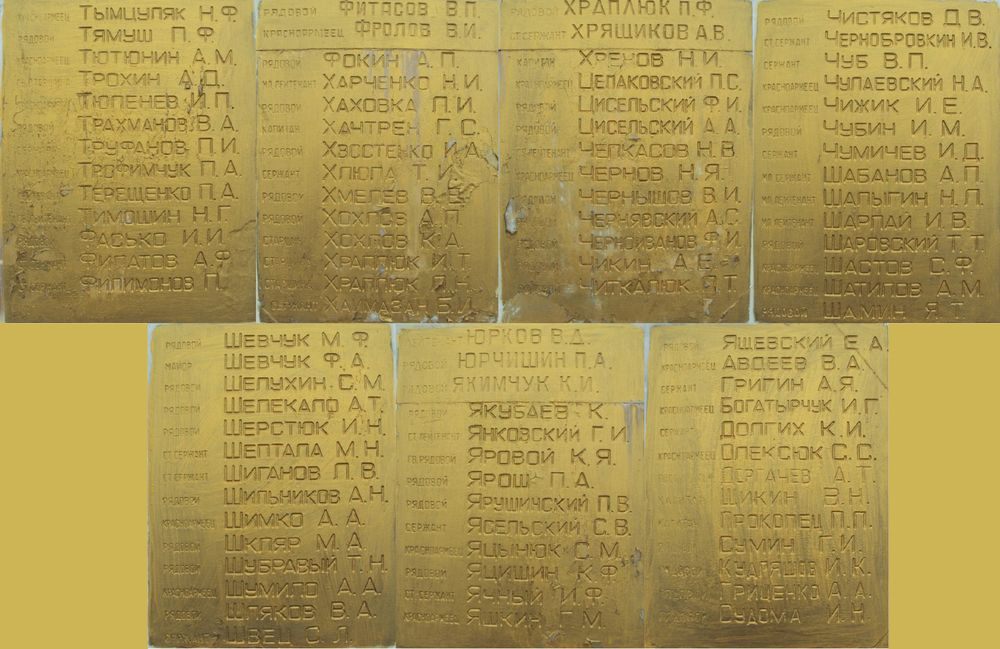 КРАСНОАРМЕЕЦ ТЫМЦУЛЯК Н.Ф.
РЯДОВОЙ ТЯМУШ П.Ф.
ТЮТЮНИН А.М.
ТРОХИН А.Д.
ТЮЛЕНЕВ И.П.
РЯДОВОЙ ТРАХМАНОВ В.А.
ТРУФАНОВ П.И.
ТРОФИМЧУК П.А.
ТЕРЕЩЕНКО П.А.
ТИМОШИН Н.Г.
ФАСЬКО И.И.
ФИЛАТОВ А.Ф.
ФИЛИМОНОВ П.
РЯДОВОЙ ФИТАСОВ В.П.
КРАСНОАРМЕЕЦ ФРОЛОВ В.И.
РЯДОВОЙ ФОКИН А.П.
МЛ.ЛЕЙТЕНАНТ ХАРЧЕНКО Н.И.
РЯДОВОЙ ХАХОВКА П.И.
КАПИТАН ХАЧТРЕН Г.С.
РЯДОВОЙ И.А.
СЕРЖАНТ ХЛЮПА Т.И.
РЯДОВОЙ ХМЕЛЕВ В.Е.
РЯДОВОЙ ХОХЛОВ А.П.
ХОХЛОВ К.А.
ХРАПЛЮК И.Т.
ХРАПЛЮК Л.Н.
СЕРЖАНТ ХАЛМАЗАН Б.И.
РЯДОВОЙ ХРАПЛЮК П.Ф.
СТ.СЕРЖАНТ ХРЯЩИКОВ А.В.
КАПИТАН ХРЕНОВ Н.И.
КРАСНОАРМЕЕЦ ЦЕЛАКОВСКИЙ П.С.
РЯДОВОЙ ЦИСЕЛЬСКИЙ Ф.И.
РЯДОВОЙ ЦИСЕЛЬСКИЙ А.А.
СТ.ЛЕЙТЕНАНТ ЧЕПКАСОВ Н.В.
КРАСНОАРМЕЕЦ ЧЕРНОВ Н.Я.
РЯДОВОЙ ЧЕРНЫШОВ В.И.
ЧЕРНЯВСКИЙ А.С.
ЧЕРНОИВАНОВ Ф.И.
ЧИКИН А.Е.
ЧИТКАЛЮК Я.Т.
РЯДОВОЙ ЧИСТЯКОВ Д.В.
СТ.СЕРЖАНТ ЧЕРНОБРОВКИН И.В.
СЕРЖАНТ ЧУБ В.П.
КРАСНОАРМЕЕЦ ЧУЛАЕВСКИЙ Н.А.
КРАСНОАРМЕЕЦ ЧИЖИК И.Е.
РЯДОВОЙ ЧУБИН И.М.
СЕРЖАНТ ЧУМИЧЕВ И.Д.
МЛ.СЕРЖАНТ ШАБАНОВ А.П.
МЛ.ЛЕЙТЕНАНТ ШАЛЫГИН Н.П.
МЛ.ЛЕЙТЕНАНТ ШАРПАЙ И.В.
РЯДОВОЙ ШАРОВСКИЙ Т.Т.
КРАСНОАРМЕЕЦ ШАСТОВ С.Ф.
КРАСНОАРМЕЕЦ ШАТИЛОВ А.М.
РЯДОВОЙ ШАМИН Я.Т.
РЯДОВОЙ ШЕВЧУК М.Ф.
МАЙОР ШЕВЧУК Ф.А.
РЯДОВОЙ ШЕЛУХИН С.М.
РЯДОВОЙ ШЕПЕКАЛО А.Т.
РЯДОВОЙ ШЕРСТЮК И.Н.
СТ.СЕРЖАНТ ШЕПТАЛА М.Н.
СТ.СЕРЖАНТ ШИГАНОВ Л.В.
РЯДОВОЙ ШИЛЬНИКОВ А.Н.
КРАСНОАРМЕЕЦ ШИМКО А.А.
РЯДОВОЙ ШКЛЯР М.А.
РЯДОВОЙ ШУБРАВЫЙ Т.Н.
КРАСНОАРМЕЕЦ ШУМИЛО А.А.
РЯДОВОЙ ШЛЯКОВ В.А.
СЕРЖАНТ ШВЕЦ С.Л.
ЮРКОВ В.Д.
РЯДОВОЙ ЮРЧИШИН П.А.
РЯДОВОЙ ЯКИМЧУК К.И.
РЯДОВОЙ ЯКУБАЕВ К.
СТ.ЛЕЙТЕНАНТ ЯНКОВСКИЙ Г.И.
ГВ.РЯДОВОЙ ЯРОВОЙ К.Я.
РЯДОВОЙ ЯРОШ П.А.
РЯДОВОЙ ЯРУШИНСКИЙ П.В.
СЕРЖАНТ ЯСЕЛЬСКИЙ С.В.
КРАСНОАРМЕЕЦ ЯЦЫНЮК С.М.
РЯДОВОЙ ЯЦИШИН К.Ф.
СТ.СЕРЖАНТ ЯЧНЫЙ И.Ф.
КРАСНОАРМЕЕЦ ЯШКИН Г.М.
РЯДОВОЙ ЯЩЕВСКИЙ Е.А.
КРАСНОАРМЕЕЦ АВДЕЕВ В.А.
СЕРЖАНТ ГРИГИН А.Я.
КРАСНОАРМЕЕЦ БОГАТЫРЧУК И.Г.
СЕРЖАНТ ДОЛГИХ К.И.
КРАСНОАРМЕЕЦ ОЛЕКСЮК С.С.
ДОРГАЧЕВ А.Т.
ШИКИН В.Н.
ПРОКОПЕЦ П.П.
СУМИН Г.И.
КУДРЯШОВ И.К.
ГРИЦЕНКО А.А.
РЯДОВОЙ СУДОМА И.Н.